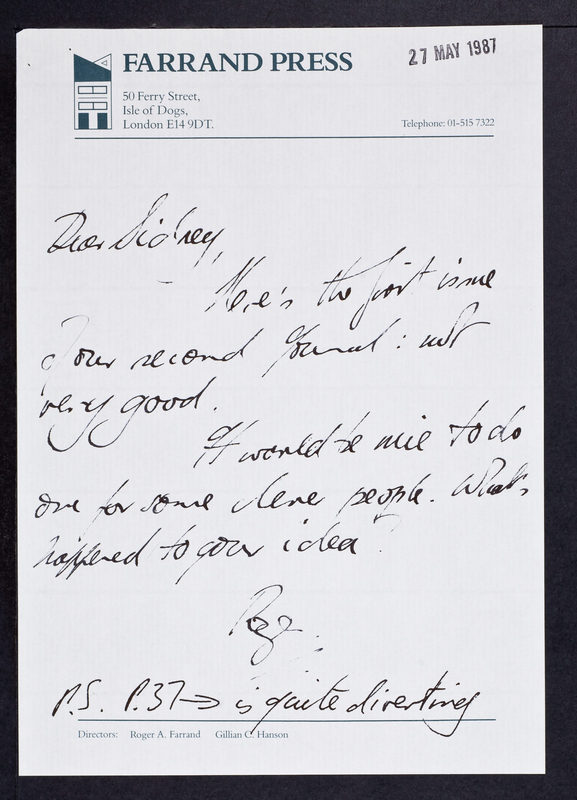 FARRAND PRESS
27 MAY 1987
50 Ferry Street,
Isle of Dogs,
London E14 9DT.
Telephone: 01-515 7322
Dear Sidney,
Here's the first issue
of our second journal: not
very good.
It would be nice to do
one for some clever people. What's
happened to your idea?
Roger.
P.S. P.37→ is quite diverting
Directors: Roger A. Farrand Gillian C. Hanson